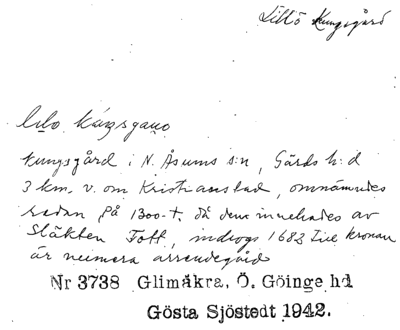 Lillö Kungsgård
Lilö kángsgano
Kungsgård i N. Åsums s:n, Gärds h:d
3 km. v. om Kristianstad, omnämndes
redan på 1300-t. då den innehades av
Släkten Tott, indrogs 1683 till kronan
är numera arrendegård
Nr 3738 Glimåkra, Ö. Göinge hd
Gösta Sjöstedt 1942.